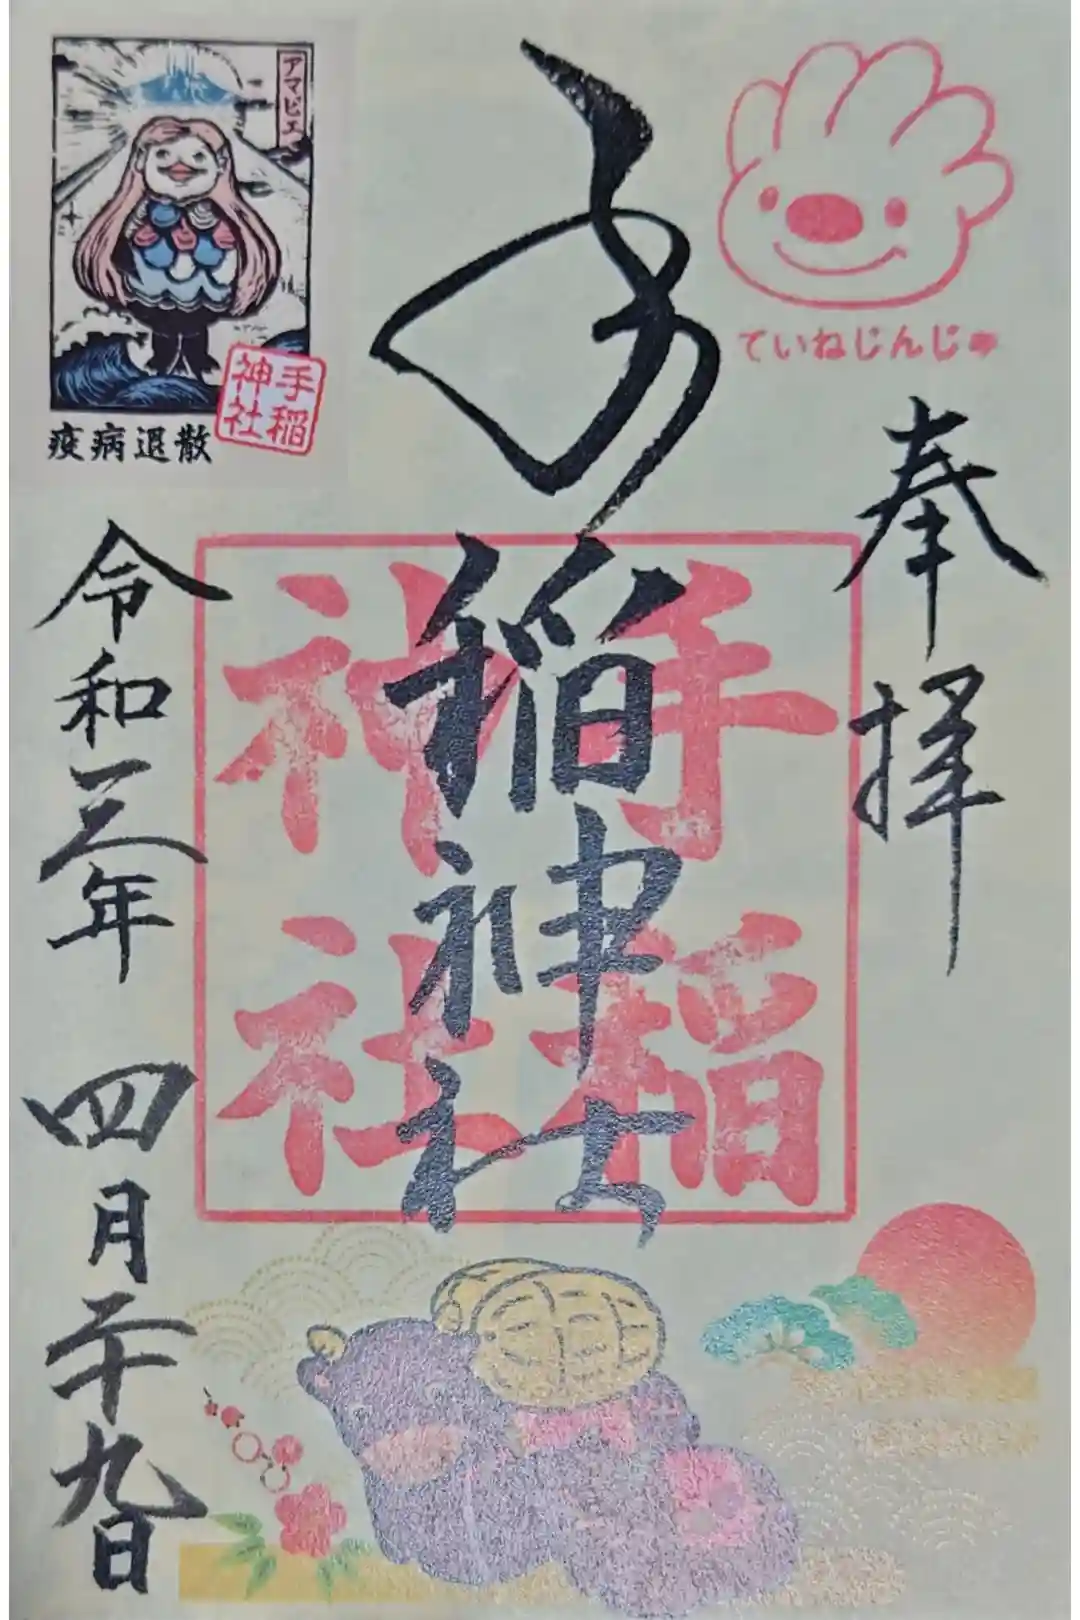 ていねじんじゃ
奉拝
手稲神社
手稲
神社
アマビエ
手稲
神社
疫病退散
令和三年 四月二十九日